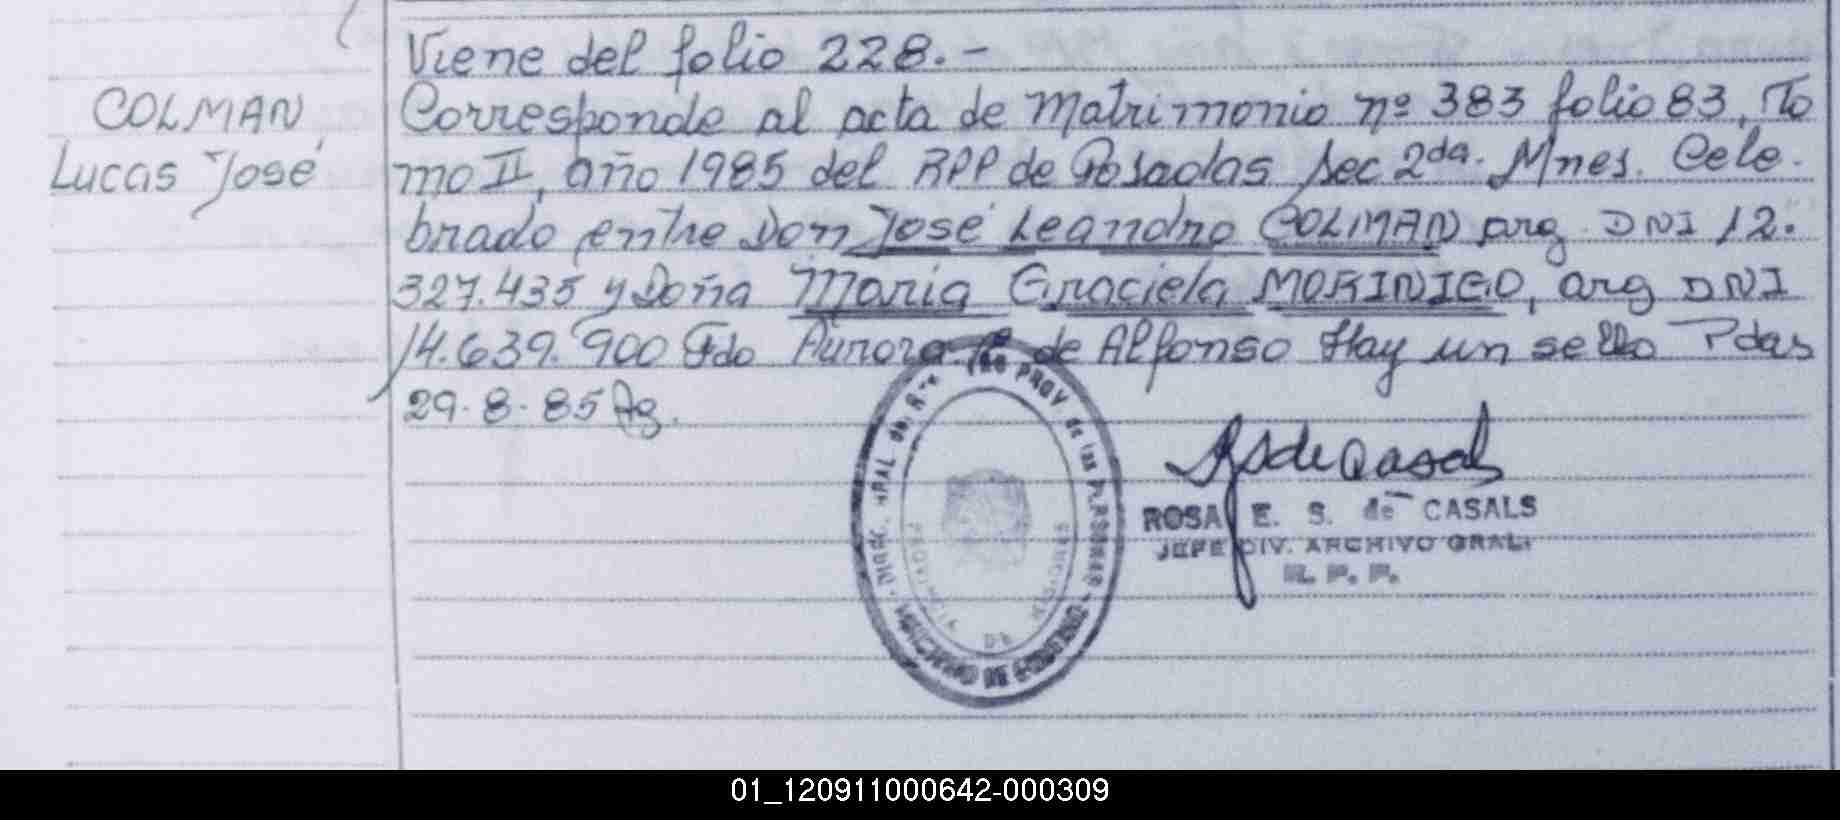 Viene del folio 228.-
COLMAN
Lucas José
Corresponde al acta de Matrimonio nº 383 folio 83, To
mo II, año 1985 del RPP de Posadas Sec 2da. Mnes. Cele-
brado entre Don José Leandro COLMAN arg. DNI 12.
327.435 y Doña Maria Graciela MORINIGO, arg DNI
14.639.900 Fdo Aurora de Alfonso Hay un sello Pdas
29.8.85
PROV de las
PROVINCIA DE MISIONES
ROSA E. S. de CASALS
JEFE DIV. ARCHIVO GRAL.
R. P. P.
01_120911000642-000309